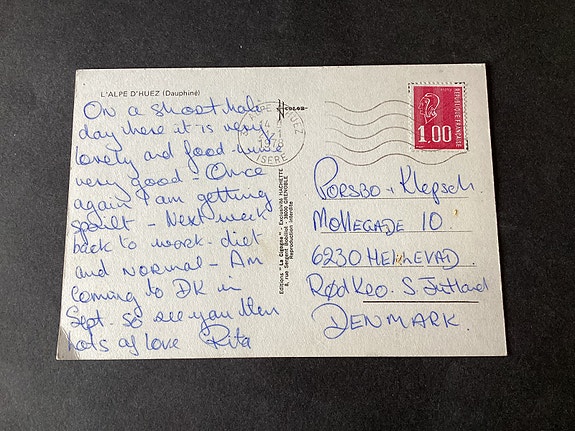 L'ALPE D'HUEZ (Dauphiné)
On a short holi
day here it is very
lovely and food + wine
very good - Once
again I am getting
spoilt - Next week
back to work - diet
and NORMAL - Am
coming to DK in
Sept. so see you then
lots of love Rita
COLOR
HUEZ
14
1978
ISERE
Editions "La Cigogne" - Exclusivité HACHETTE
8, rue Sergent Bobillot - 38000 GRENOBLE
Reproduction interdite
REPUBLIQUE FRANÇAISE
1,00
PORSBO + Klepsch.
MØLLEGADE 10
6230
RØDKRO. S Jutland
DENMARK.